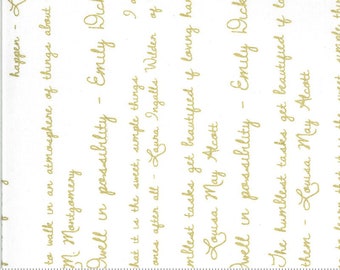 happen - L
to walk in an atmosphere of things about
M. Montgomery
Dwell in possibility - Emily Dick
that it is the sweet, simple things
ones after all - Laura Ingalls Wilder of
mblest tasks get beautified if loving har
Louisa May Alcott
Dwell in possibility - Emily Dick
The humblest tasks get beautified if loving
them - Louisa May Alcott